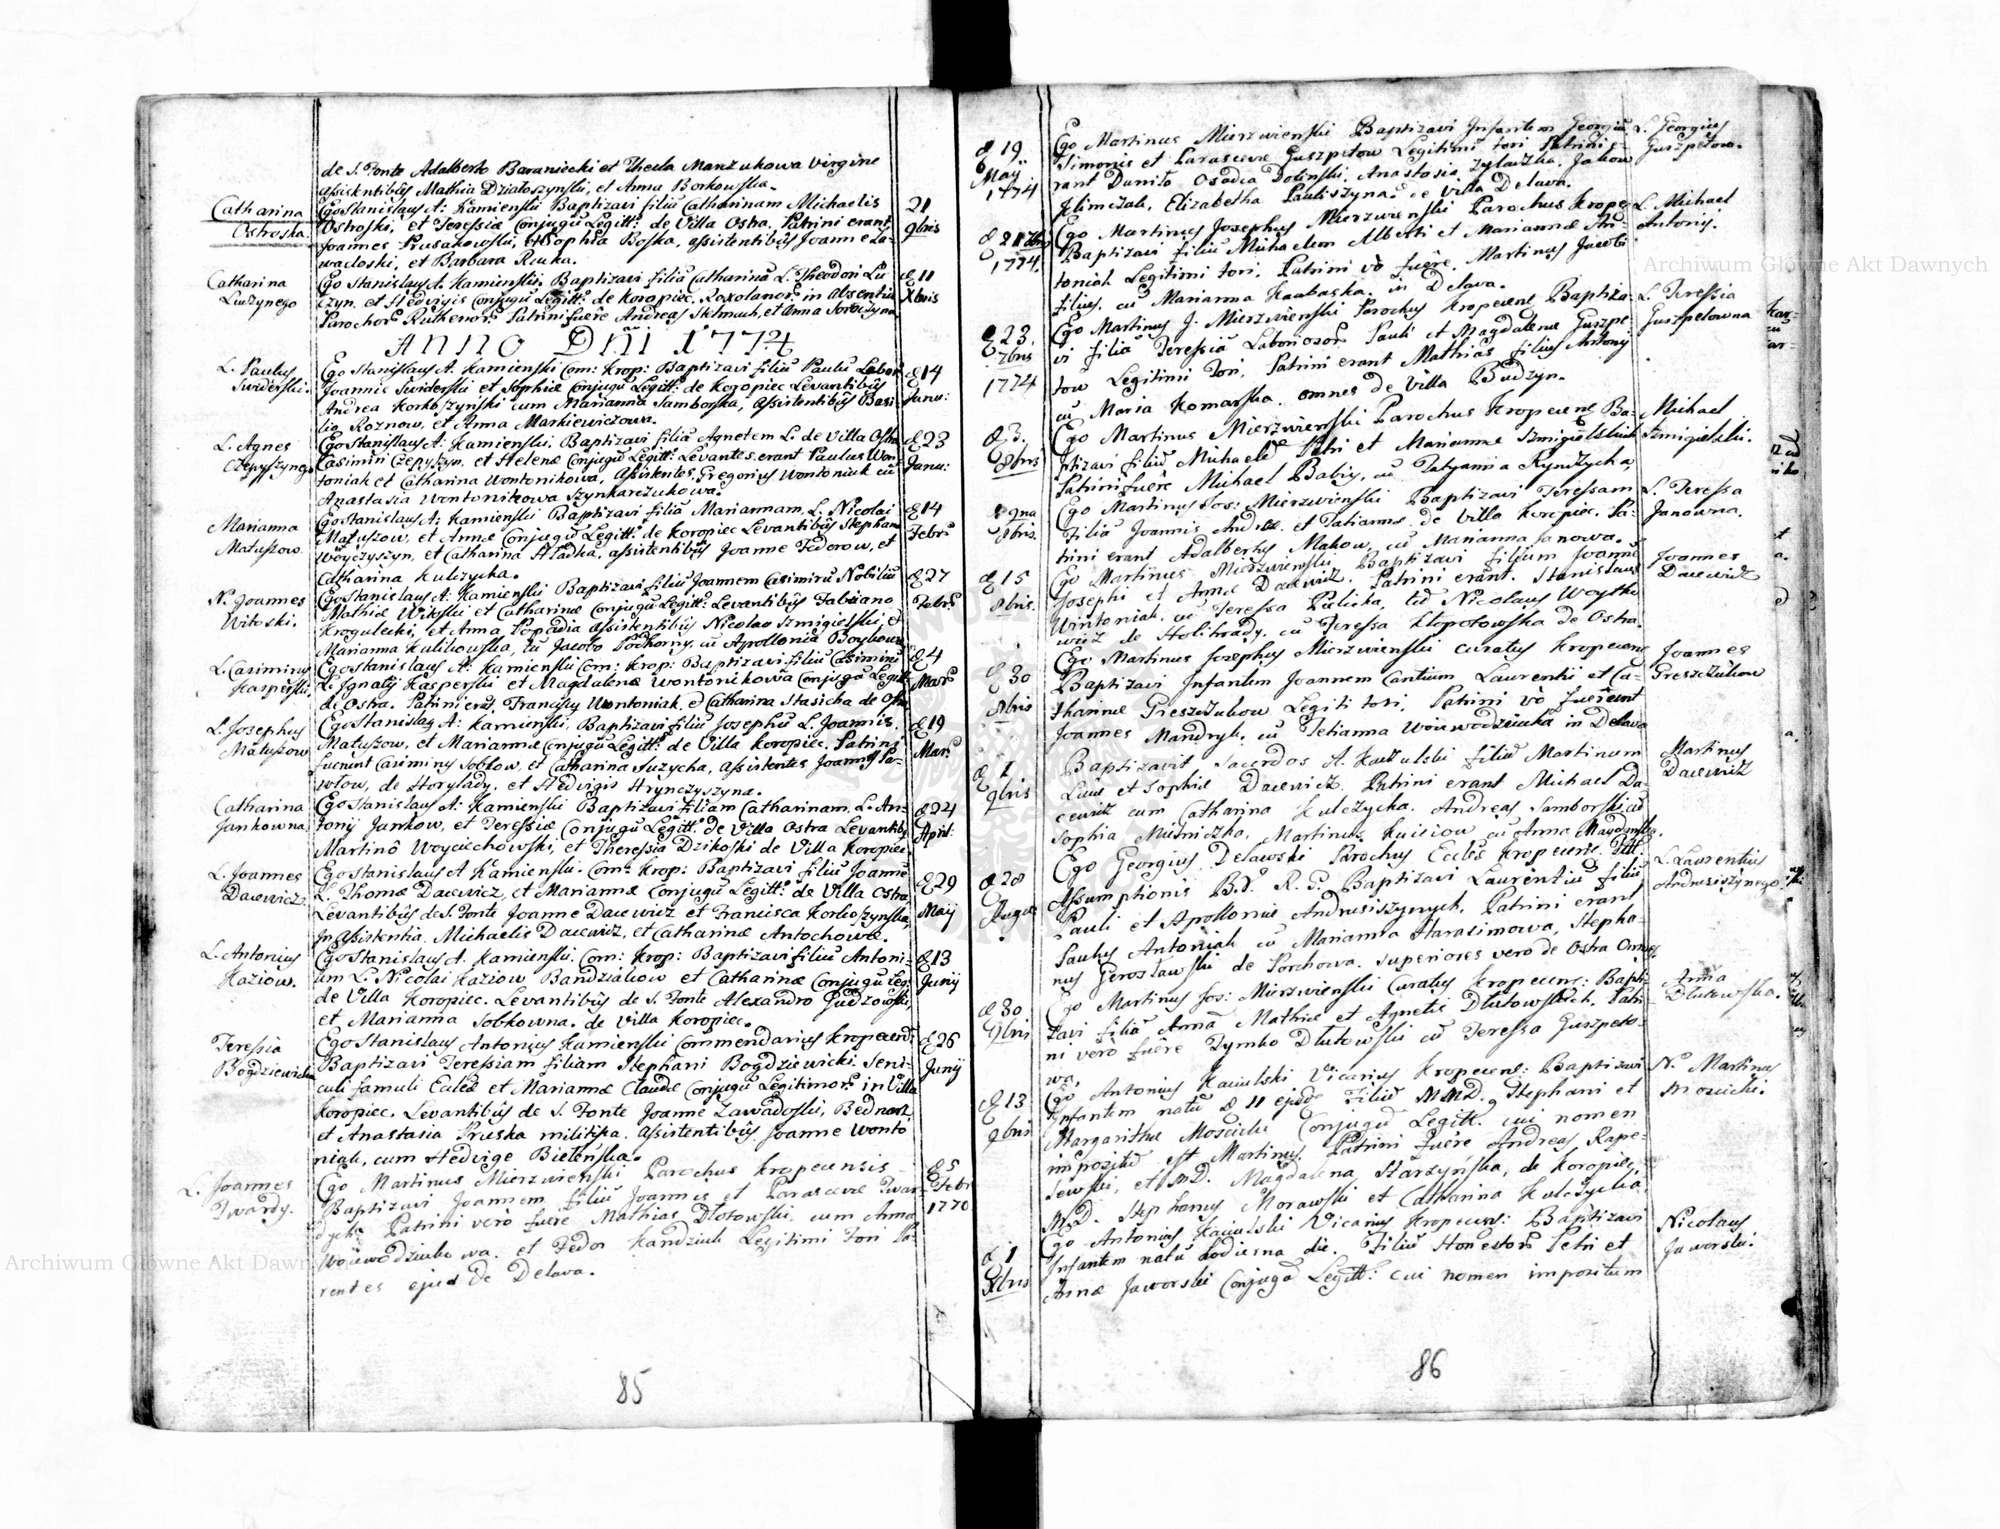 de S. Fonte Adalberto Baraniecki et Thecla Manzukowa Virgine
assistentibus Mathia Działoszynski, et Anna Borkowska.
Catharina
Ostroska.
Ego Stanislaus A: Kamienski Baptizavi filiã Catharinam Michaelis
Ostroski, et Teressiæ Conjugũ Legitt: de Villa Ostra. Patrini erant
Joannes Prusakowski, et Sophia Boska, assistentibus Joanne Za-
wadoski, et Barbara Rauka.
21
9bris
Catharina
Luczynego
Ego Stanislaus A. Kamienski Baptizavi filiã Catharinã L. Theodori Lu
czyn. et Hedvigis Conjugũ Legitt: de Koropiec. Roxolanor: in absentia
Parochor: Ruthenor: Patrini fuere Andreas Skhmuch, et Anna
d 11
Xbris
Anno Dni 1774
L. Paulus
Swiderski.
Ego Stanislaus A: Kamienski Com: Krop: Baptizavi filiũ Paulũ Labor
Joannis Swiderski et Sophiæ Conjugũ Legitt: de Koropiec Levantibus
Andrea Korkoszyński cum Marianna Samborska, assistentibus Basi-
lio Roznow, et Anna Markiewiczowa.
d 14
Janu:
L. Agnes
Czepyszynego
Ego Stanislaus A: Kamienski, Baptizavi filiã Agnetem L. de Villa Ostra
Casimiri Czepyszyn, et Helenæ Conjugũ Legitt: Levantes erant Paulus Won-
toniak et Catharina Wontonikowa, Assistentes Gregorius Wontoniak cũ
Anastasia Wontonikowa Szynkarczukowa.
d 23
Janu:
Marianna
Matuszow
Ego Stanislaus A: Kamienski Baptizavi filiã Mariannam L. Nicolai
Matuszow, et Annæ Conjugũ Legitt: de Koropiec Levantibus Stephano
Woyczyszyn, et Catharina Hladka, assistentibus Joanne Fedorow, et
Catharina Kulczycka.
d 14
Febr:
N. Joannes
Witoski.
Ego Stanislaus A: Kamienski Baptizavi filiũ Joannem Casimirũ Nobiliũ
Mathiæ Witoski et Catharinæ Conjugũ Legitt: Levantibus Fabiano
Krogulecki, et Anna Popadia assistentibus Nicolao Szmigielski, et
Marianna Kulikowska, tũ Jacobo Podhorny, cũ Apollonia
d 27
Febr:
L. Casimirus
Kasperski
Ego Stanislaus A: Kamienski Com: Krop: Baptizavi filiũ Casimirũ
L. Ignatij Kasperski et Magdalenæ Wontonikowa Conjugũ Legitt:
de Ostra. Patrini erãt, Franciscus Wontoniak, et Catharina Stasicha de Ostra
d 4
Mar:
L. Josephus
Matuszow
Ego Stanislaus A: Kamienski, Baptizavi filiũ Josephũ L. Joannis
Matuszow, et Mariannæ Conjugũ Legitt: de Villa Koropiec. Patrini
fuerunt Casimirus Sobkow, et Catharina Suzycha, Assistentes Joannes Pa-
wlow, de Horylady, et Hedvigis Hrynczyszyna.
d 19
Mar:
Catharina
Jankowna
Ego Stanislaus A: Kamienski Baptizavi filiam Catharinam. L. An-
tonij Jankow, et Teressiæ Conjugũ Legitt: de Villa Ostra Levantib:
Martino Woyciechowski, et Theressia Dzikoski de Villa Koropiec.
d 24
April:
L. Joannes
Dacewicz
Ego Stanislaus A Kamienski. Com: Krop: Baptizavi filiũ Joannẽ
L. Thomæ Dacewicz, et Mariannæ Conjugũ Legitt: de Villa Ostra
Levantibus de S. Fonte Joanne Dacewicz et Francisca Korkoszynska,
In assistentia. Michaelis Dacewicz, et Catharinæ Antochowæ.
d 29
Maij
L. Antonius
Haziow.
Ego Stanislaus A. Kamienski. Com: Krop: Baptizavi filiũ Antoni-
um L. Nicolai Haziow Bandziakow et Catharinæ Conjugũ Leg:
de Villa Koropiec. Levantibus de S. Fonte Alexandro Gudzowski,
et Marianna Sobkowna. de Villa Koropiec.
d 13
Junij
Teressia
Bogdziewicka
Ego Stanislaus Antonius Kamienski Commendarius Kropecen:
Baptizavi Teressiam filiam Stephani Bogdziewicki. Seni-
culi famuli Eccleæ et Mariannæ Claudæ Conjugũ Legitimor: in Villa
Koropiec. Levantibus de S. Fonte Joanne Zawadoski, Bednarz
et Anastasia Pruska militissa. Assistentibus Joanne Wonto
niak, cum Hedvige Bielenska.
d 26
Junij
L. Joannes
Twardy.
Ego Martinus Mierzwienski Parochus Kropecensis
Baptizavi Joannem filiũ Joannis et Parasceve Twar-
dych. Patrini verò fuere Mathias Dlotowski, cum Anna
Woiewodziubowa. et Fedor Kandziuk Legitimi Tori Pa-
rentes ejusd de Delava.
d 5
Febr
1770
85
d 19
May
1774
Ego Martinus Mierzwienski Baptizavi Infantem Georgiũ
Simonis et Parasceve Guszpetow Legitimi tori Patrini e-
rant Daniło Osadca Dolinski. Anastasia Zylawska. Jakow
Klimczak, Elizabetha Pauliszyna de Villa Delava.
L. Georgius
Guszpetow.
d 21 7bris
1774.
Ego Martinus Josephus Mierzwienski Parochus Krope
Baptizavi filiũ Michaelem Alberti et Mariannæ An-
toniak Legitimi tori. Patrini vò fuere. Martinus Jacobi
filius, cũ Marianna Haubaska. in Delava.
L. Michael
Antonij.
d 23.
7bris
1774
Ego Martinus J. Mierzwienski Parochus Kropecens Baptiza-
vi filiã Teressiã Laborosor: Pauli et Magdalenæ Guszpe-
tow Legitimi Tori. Patrini erant Mathias filius Antony
cũ Maria Komarska. omnes de Villa Budzyn.
L. Teressia
Guszpetowna
d 3.
8bris
Ego Martinus Mierzwienski Parochus Kropecens Ba-
ptizavi filiũ Michaelẽ Petri et Mariannæ Szmigielskich
Patrini fuere Michael Babij, cũ Tatyanna Ryndzycha,
Michael
Szmigielski.
d 9na
8bris.
Ego Martinus Jos: Mierzwienski Baptizavi Teressam
Filiã Joannis et Tatianæ de Villa Koropiec. Pa-
trini erant Adalbertus Makow, cũ Marianna Janowa.
L. Teressa
Janowna.
d 15
8bris.
Ego Martinus Mierzwienski Baptizavi filium Joannẽ
Josephi et Annæ Dacewicz. Patrini erant. Stanislaus
Wintoniak, cũ Teressa Pielicka, tũ Nicolaus Woytko
wicz de Holihrady, cũ Teressa Kłopotowska de Ostra.
Joannes
Dacewicz
d 30
8bris
Ego Martinus Josephus Mierzwienski curatus Kropecens
Baptizavi Infantem Joannem Cantium Laurentii et Ca-
tharinæ Greszczukow Legiti tori, Patrini vò fuerunt
Joannes Mandryk, cũ Tetianna Woiewodziuka in Delava
Joannes
Greszczukow
d 1
9bris
Baptizavit Sacerdos A. Kaculski filiũ Martinum
Lucæ et Sophiæ Dacewicz. Patrini erant Michael Da-
cewicz cum Catharina Kulczycka. Andreas Samborski cũ
Sophia Mielniczka, Martinus Kuiciow cũ Anna
Martinus
Dacewicz
d 28
Augus
Ego Georgius Delawski Parochus Eccles Kropecens Titt:
Assumptionis B.V. R. G. Baptizavi Laurentiũ filiũ
Pauli et Apolloniæ Andrusiszynych. Patrini erant
Paulus Antoniak cũ Marianna Harasimowa, Stepha-
nus Gerosławski de Porchowa. superiores vero de Ostra Omnes.
L. Laurentius
Andrusiszynego
d 30
9bris
Ego Martinus Jos: Mierzwienski Curatus Kropecens: Bapti-
zavi filiã Annã Mathiæ et Agnetis Dlutowskich. Patri-
ni verò fuere Tymko Dlutowski cũ Teressa Guszpeto-
wa,
Anna
Dlutowska.
d 13
9bris
Ego Antonius Kaculski Vicarius Kropecens: Baptizavi
Infantem natũ d 11 ejusd Filiũ M.M.D. Stephani et
Margarithæ Moscicki Conjugũ Legitt. cui nomen
impositũ est Martinus. Patrini fuere Andreas Rape-
lewski, et M.D. Magdalena Starzyńska, de Koropiec.
M.D. Stephanus Morawski et Catharina Kulczycka
N. Martinus
Moscicki.
d 1
Xbris
Ego Antonius Kaculski Vicarius Kropecens: Baptizavi
Infantem natũ hodierna die. Filiũ Honestor: Petri et
Annæ Jaworski Conjugũ Legitt: cui nomen impositum
Nicolaus
Jaworski.
86
Archiwum Główne Akt Dawnych
Archiwum Główne Akt Dawnych